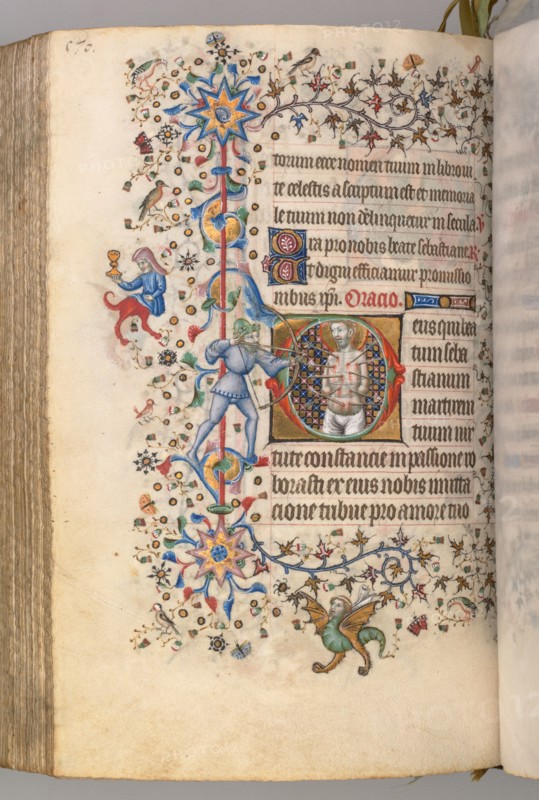 torum ecce nomen tuum in libro vi
te celestis ascriptum est et memoria
le tuum non delinquetur in secula. V
Ora pro nobis beate sebastiane. R
Ut digni efficiamur promissio
nibus xpi. Oracio.
Deus qui bea
tum seba
stianum
martirem
tuum vir
tute constancie in passione ro
borasti ex eius nobis imitta
cione tribue pro amore tuo